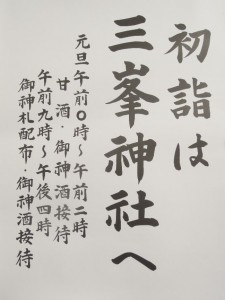 初詣は
三峯神社へ
元旦午前0時～午前二時
甘酒・御神酒接待
午前九時～午後四時
御神札配布・御神酒接待